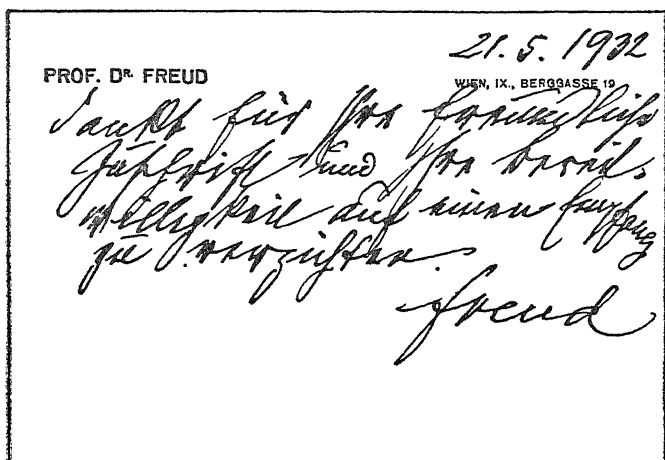 21. 5. 1932
PROF. DR. FREUD
WIEN, IX., BERGGASSE 19
dankt für Ihre freundliche
Zuschrift und Ihre bereit-
willigkeit auf einen Empfang
zu verzichten.
Freud